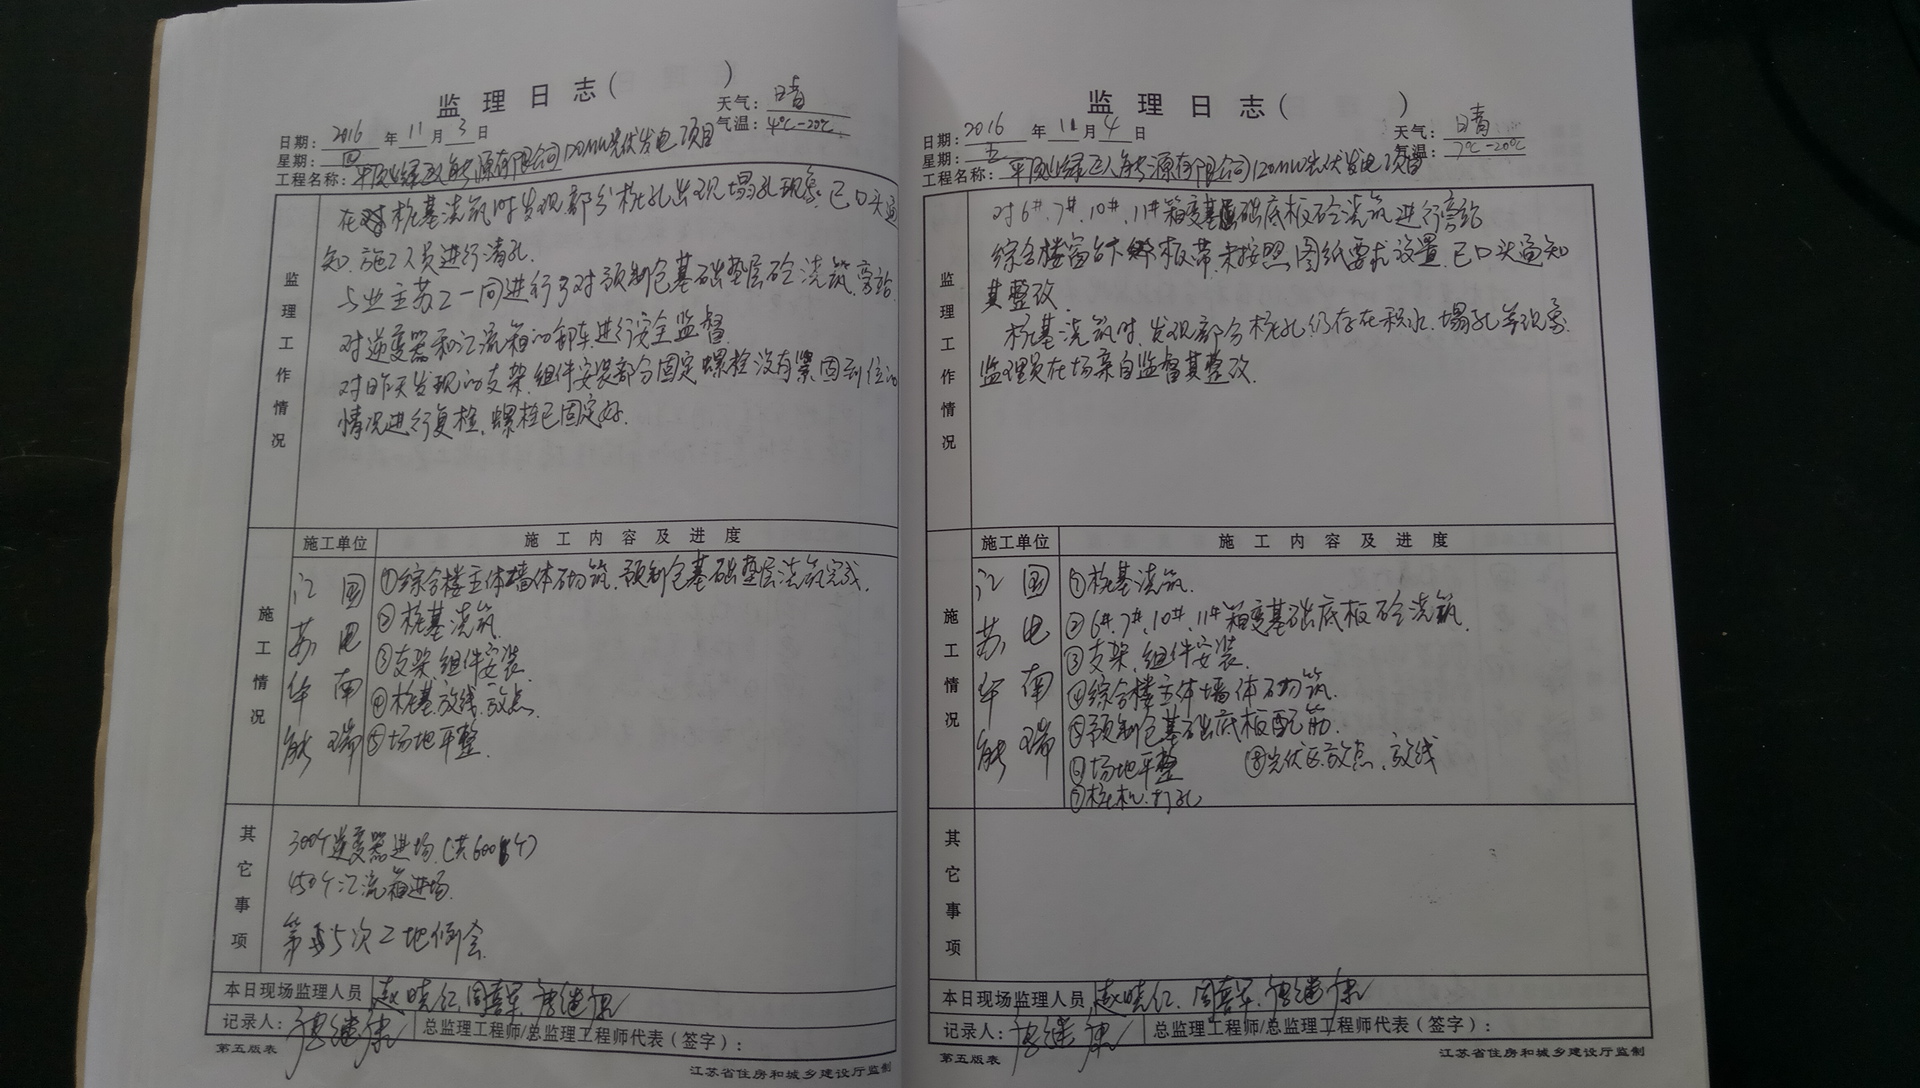 监理日志(          )
天气: 晴
日期: 2016 年 11 月 3 日
气温: 4℃-20℃
星期: 四
工程名称: 平顶山绿 能源有限公司120MW光伏发电项目
监理工作情况
在对桩基浇筑时发现部分桩孔出现塌孔现象,已口头通
知施工人员进行清孔.
与业主苏工一同进行了对预制仓基础垫层砼浇筑旁站.
对逆变器和汇流箱的卸车进行安全监督.
对昨天发现的支架.组件安装部分固定螺栓没有紧固到位的
情况进行复检,螺栓已固定好.
施工情况
施工单位
施工内容及进度
江苏华能
国电南瑞
①综合楼主体墙体砌筑.预制仓基础垫层浇筑完成.
②桩基浇筑.
③支架.组件安装.
④桩基放线.放点.
⑤场地平整.
其它事项
300个逆变器进场.(共600个)
450个汇流箱进场.
第5次工地例会.
本日现场监理人员 赵晓仁.周喜军.唐继康
记录人: 唐继康 总监理工程师/总监理工程师代表(签字):
第五版表
江苏省住房和城乡建设厅监制
监理日志(          )
天气: 晴
日期: 2016 年 11 月 4 日
气温: 7℃-20℃
星期: 五
工程名称: 平顶山绿 能源有限公司120MW光伏发电项目
监理工作情况
对6#.7#.10#.11#箱变基础底板砼浇筑进行旁站
综合楼窗台下 板带.未按照图纸要求设置.已口头通知
其整改.
桩基浇筑时.发现部分桩孔仍存在积水.塌孔等现象.
监理员在场亲自监督其整改.
施工情况
施工单位
施工内容及进度
江苏华能
国电南瑞
①桩基浇筑.
②6#.7#.10#.11#箱变基础底板砼浇筑.
③支架.组件安装.
④综合楼主体墙体砌筑.
⑤预制仓基础底板配筋.
⑥场地平整
⑧光伏区放点.放线
⑦桩机.打孔
其它事项
本日现场监理人员 赵晓仁.周喜军.唐继康
记录人: 唐继康 总监理工程师/总监理工程师代表(签字):
第五版表
江苏省住房和城乡建设厅监制